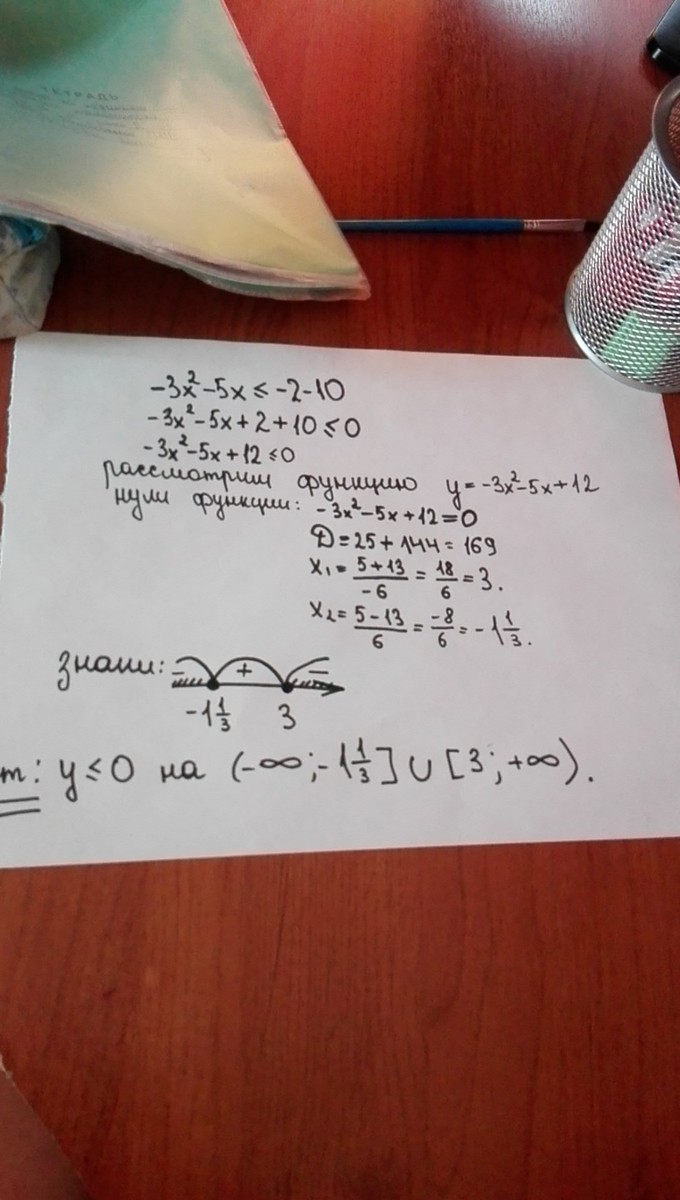 ТЕТРАДЬ
-3x²-5x ≤ -2-10
-3x²-5x+2+10 ≤ 0
-3x²-5x+12 ≤ 0
рассмотрим функцию y=-3x²-5x+12
нули функции: -3x²-5x+12=0
D=25+144=169
x₁= (5+13)/(-6) = 18/6 = 3.
x₂= (5-13)/6 = -8/6 = -1 1/3.
знаки: - + -
-1 1/3 3
т: y ≤ 0 на (-∞;-1 1/3] ∪ [3;+∞).